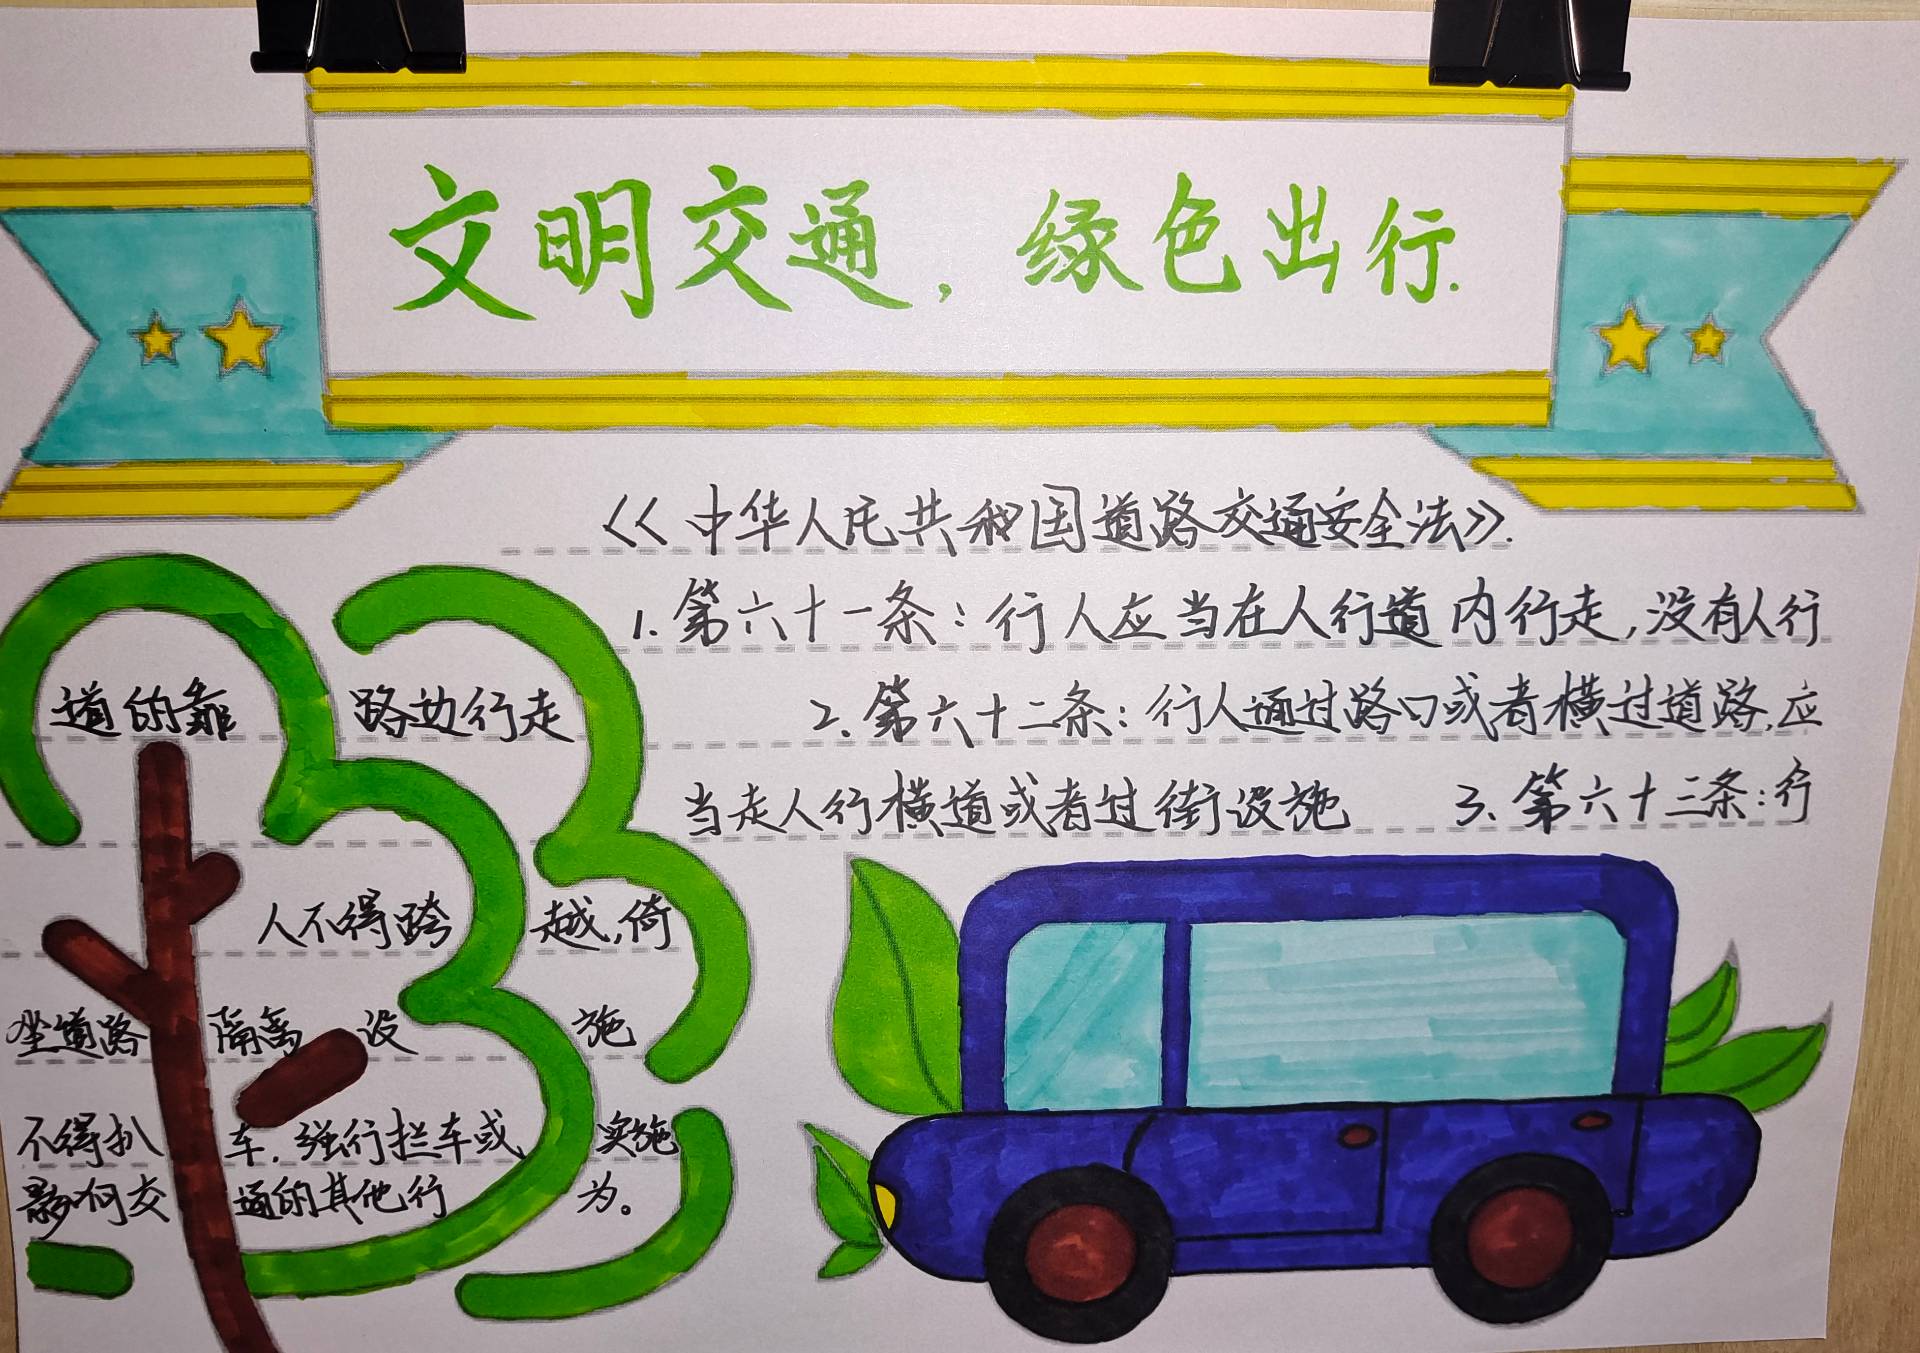 文明交通，绿色出行.
《中华人民共和国道路交通安全法》.
1. 第六十一条：行人应当在人行道内行走,没有人行
道的靠路边行走 2. 第六十二条：行人通过路口或者横过道路,应
当走人行横道或者过街设施 3. 第六十三条：行
人不得跨越,倚
坐道路隔离设施
不得扒车,强行拦车或实施
影响交通的其他行为。